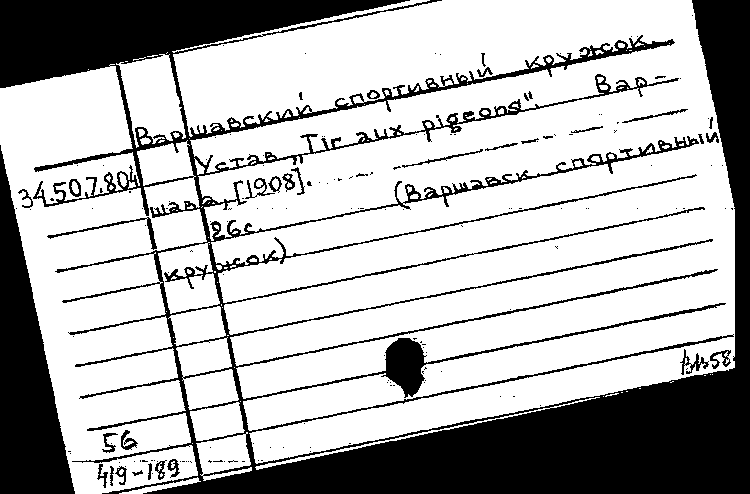 Варшавский спортивный кружок.
Устав „Tir aux pigeons“. Вар-
34.50.7.804
шава, [1908].
26с. (Варшавск. спортивный
кружок).
56
419-189